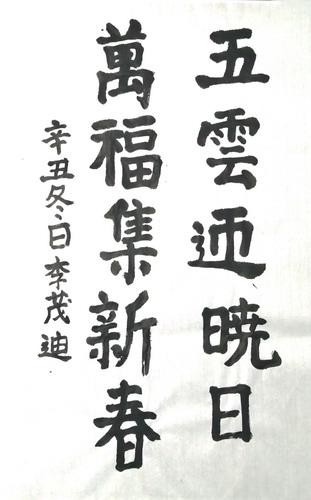 五雲迎暁日
萬福集新春
辛丑冬日李茂迪